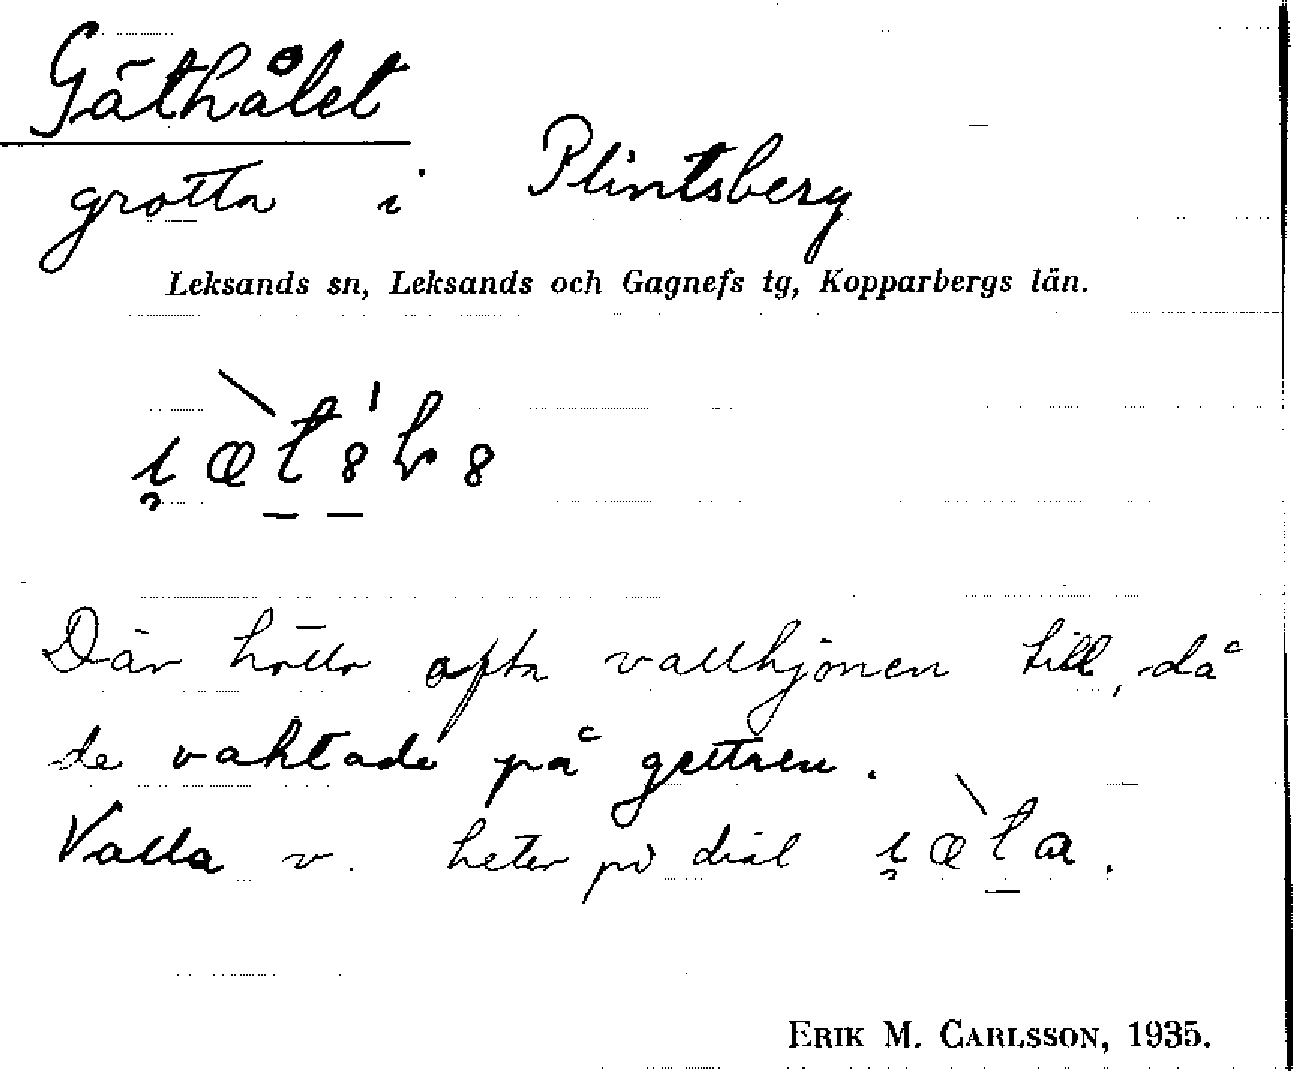 Gäthålet
grotta i Plintsberg
Leksands sn, Leksands och Gagnefs tg, Kopparbergs län.
Där höllo ofta vallhjonen till, då
de vaktade på getren.
Valla v. heter på dial
ERIK M. CARLSSON, 1935.